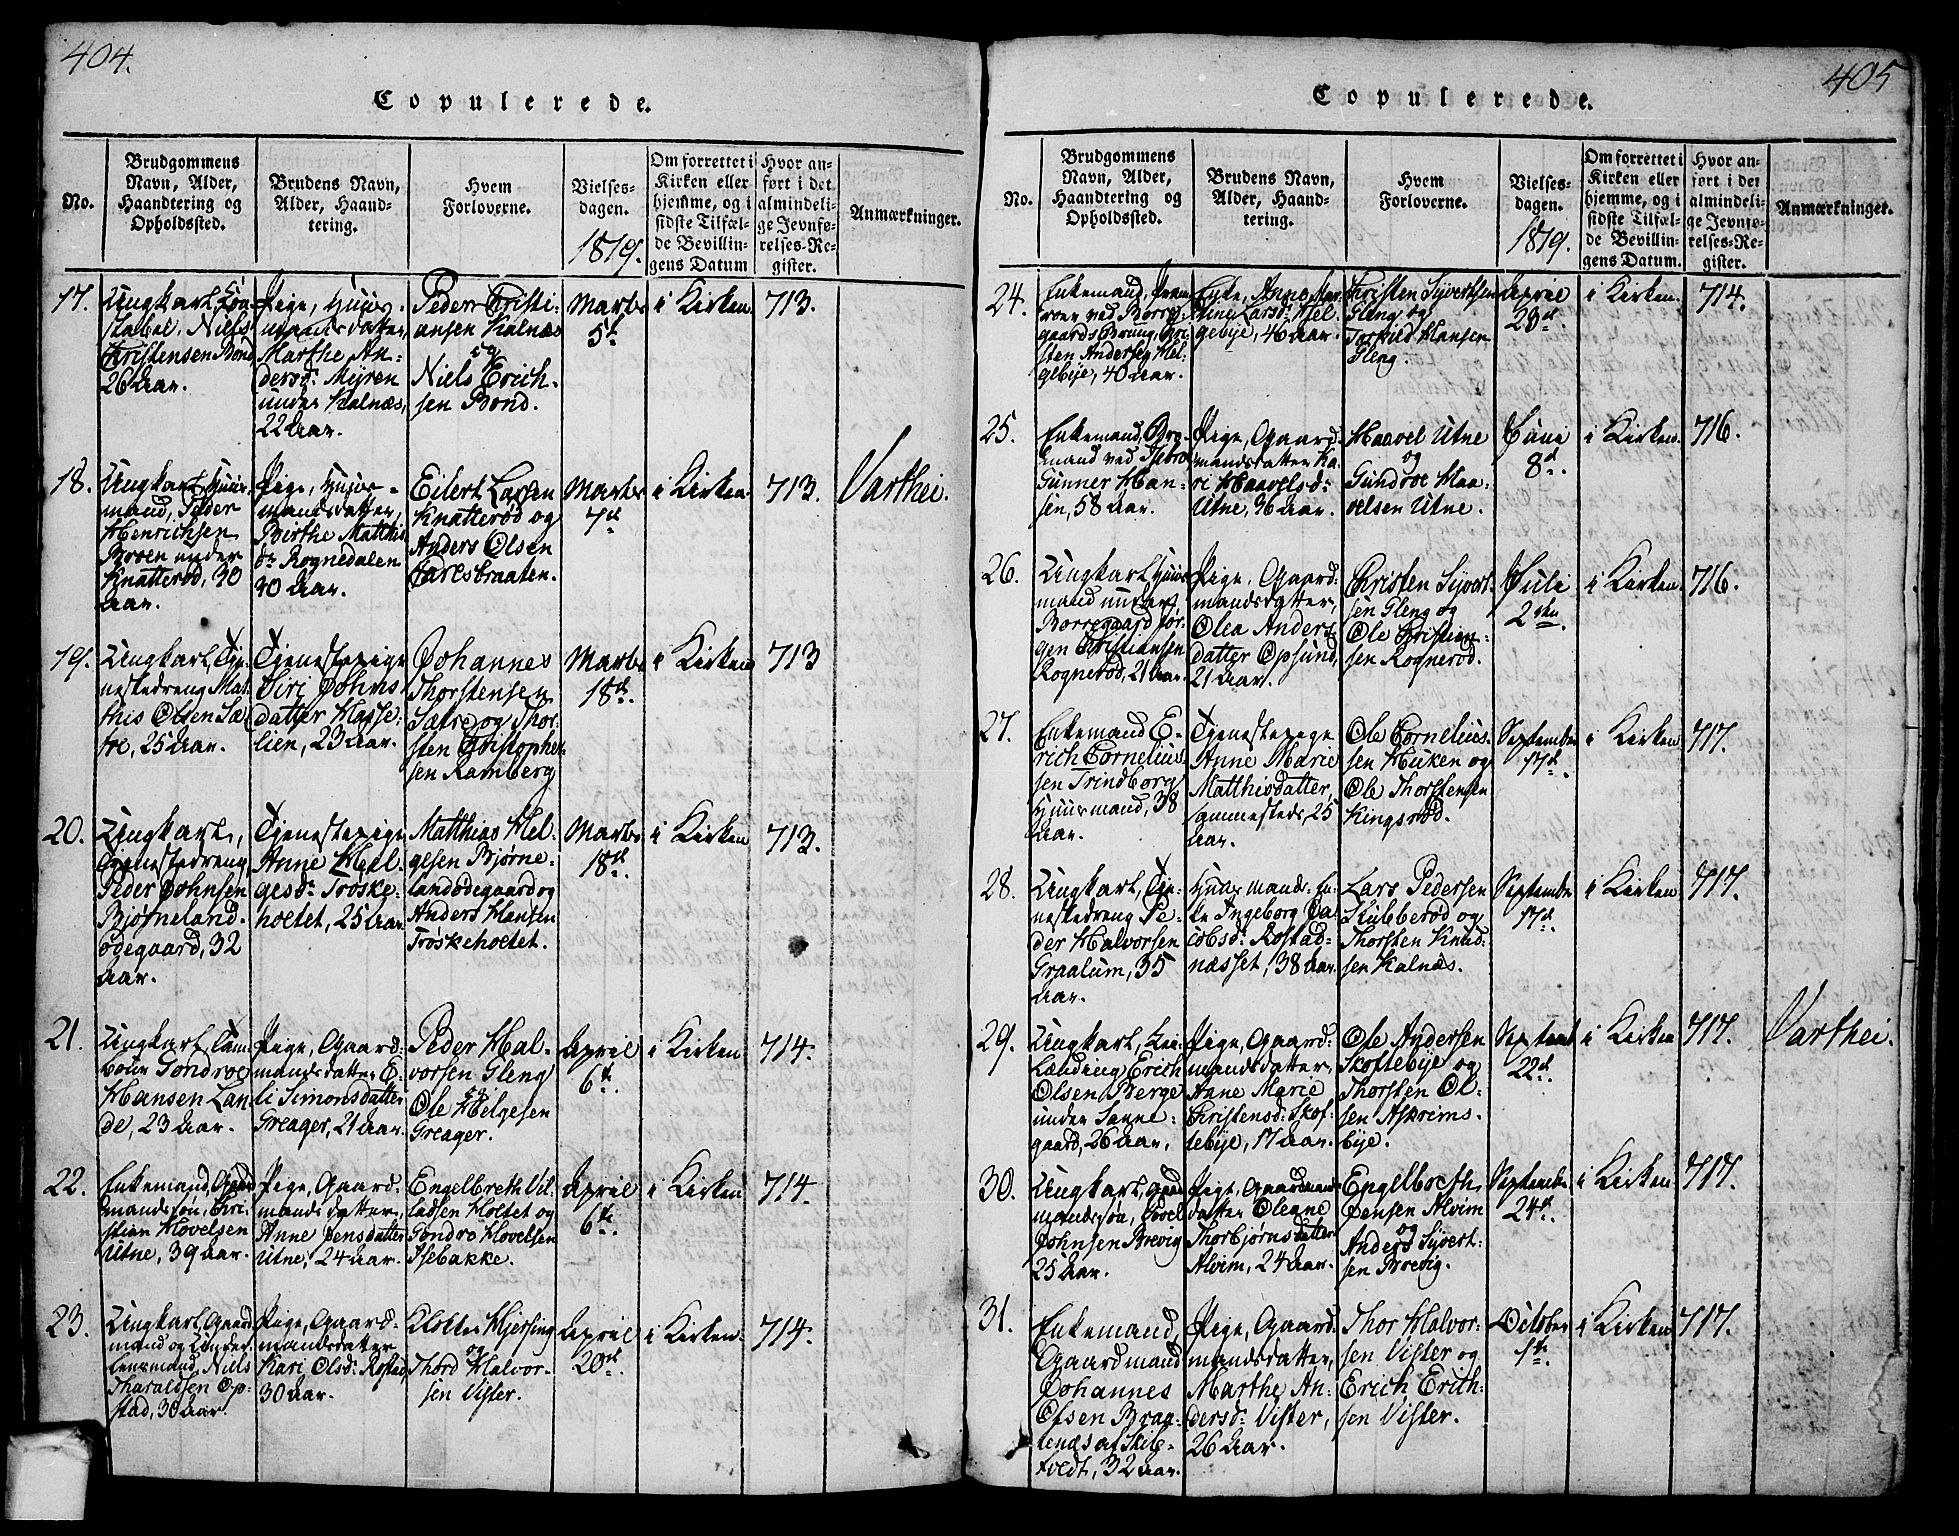 404.
Copulerede.
No.
Brudgommens
Navn, Alder,
Haandtering og
Opholdssted.
Brudens Navn,
Alder, Haand-
tering.
Hvem
Forloverne.
Vielses-
dagen.
1819.
Om forrettet i
Kirken eller
hjemme, og i
sidste Tilfæl-
de Bevillin-
gens Datum
Hvor an-
ført i det
almindeli-
ge Jevnfø-
relses-Re-
gister.
Anmærkninger.
17.
Ungkarl,
stabel, Niels
Christensen Bond,
26 Aar.
Pige, Huus-
mandsdatter,
Marthe An-
dersd: Myren
under Kalnæs,
22 Aar.
Peder Christi-
ansen Kalnæs
og
Niels Erich-
sen Bond.
Marts
5t
i Kirken
713.
18.
Ungkarl, Huus-
mand, Peder
Henrichsen
Broen under
Knatterød, 30
Aar.
Pige, Huus-
mandsdatter,
Birthe Matthis
d: Rognedalen
30 Aar.
Eilert Larsen
Knatterød og
Anders Olsen
Jarlsbraaten.
Marts
7d
i Kirken
713.
Varthei.
19.
Ungkarl, Tje-
nestedreng Mat-
this Olsen Sæ-
tre, 25 Aar.
Tjenestepige
Siri Johns-
datter Hasse-
lien, 23 Aar.
Johannes
Thorstensen
Sætre og Thor-
sten Christopher-
sen Ramberg
Marts
18d.
i Kirken
713
20.
Ungkarl,
Tjenestedreng
Peder Johnsen
Bjørneland-
ødegaard, 32
Aar.
Tjenestepige
Anne Hel-
gesd: Trøske-
hoetet, 25 Aar
Matthias Hel-
gesen Bjørne-
landødegaard og
Anders Hansen
Trøskehoetet.
Marts
18d.
i Kirken
713.
21.
Ungkarl, Tam-
bour Gondroe
Hansen Lan-
de, 23 Aar.
Pige, Gaard-
mandsdatter E-
li Simonsdatter
Greager, 21 Aar.
Peder Hal-
vorsen Gleng
og
Ole Helgesen
Greager.
April
6t.
i Kirken
714.
22.
Enkemand, Gaard
mandssøn, Chri-
stian Hovelsen
Utne, 39 Aar.
Pige, Gaard-
mandsdatter,
Anne Jensdatter
Utne, 24 Aar.
Engelbreth Vil-
ladsen Holtet og
Gondro Hovelsen
Isebakke.
April
6t.
i Kirken
714.
23.
Ungkarl, Gaard
mand og
Lensmand, Niels
Tharaldsen Op-
stad, 30 Aar.
Pige, Gaard-
mandsdatter
Kari Olsd: Rostad,
30 Aar.
Hjersing
og
Thord Halvor-
sen Vister.
April
20d.
i Kirken
714.
405
Copulerede.
No.
Brudgommens
Navn, Alder,
Haandtering og
Opholdssted.
Brudens Navn,
Alder, Haand-
tering.
Hvem
Forloverne.
Vielses-
dagen.
1819.
Om forrettet i
Kirken eller
hjemme, og i
sidste Tilfæl-
de Bevillin-
gens Datum.
Hvor an-
ført i det
almindeli-
ge Jevnfø-
relses-Re-
gister.
Anmærkninger.
24.
Enkemand,
ved Borre-
gaards Bruug, Chri-
sten Andersen Hel-
gebye, 40 Aar.
Enke, Anne Mar-
Larsd: Hel-
gebye, 46 Aar.
Christen Syvertsen
Gleng og
Torkild Hansen
Gleng.
April
23d.
i Kirken
714.
25.
Enkemand, Bro-
mand ved
Gunner Han-
sen, 58 Aar.
Pige, Gaard-
mandsdatter Ka-
ri Haavelsd:
Utne, 36 Aar.
Haavel Utne
og
Gundroe Haa-
velsen Utne.
Juni
8d.
i Kirken
716.
26.
Ungkarl, Huus-
mand under
Borregaard Jør-
gen Christiansen
Rognerød, 21 Aar.
Pige, Gaard-
mandsdatter,
Olea Anders-
datter Opsund,
21 Aar.
Christen Syvert-
sen Gleng og
Ole Christian-
sen Rognerød.
Juli
2den.
i Kirken
716.
27.
Enkemand E-
rich Cornelius-
sen Trindborg
Huusmand, 38
Aar.
Tjenestepige
Anne Marie
Matthisdatter,
sammesteds 25
Aar.
Ole Cornelius-
sen Huken og
Ole Thorstensen
Kingsrød.
September
17d.
i Kirken
717.
28.
Ungkarl, Tje-
nestedreng Pe-
der Halvorsen
Graalum, 35
Aar.
Huusmands En-
ke Ingeborg Ja-
cobsd: Rostad-
næsset, 38 Aar
Lars Pedersen
Stubberød og
Thorsten Knud-
sen Kalnæs.
September
17d.
i Kirken
717.
29.
Ungkarl, Lei-
lænding Erich
Olsen Berge
under Sanne-
gaard, 26 Aar.
Pige, Gaard-
mandsdatter,
Anne Marie
Christensd: Skof-
tebye, 17 Aar.
Ole Andersen
Skoftebye og
Thorsten Ol-
sen Askrims-
bye.
Septemb
22d.
i Kirken
717.
Varthei.
30.
Ungkarl, Gaard
mandssøn, Hovel
Johnsen Brevig
25 Aar.
Pige, Gaardmands
datter Oleane
Thorbjørnsdatter
Alvim, 24 Aar.
Engelbreth
Jensen Alvim
og
Anders Syvert-
sen Brevig.
September
24d.
i Kirken
717.
31.
Enkemand,
Gaardmand
Johannes
Olsen Braa-
tenæs af Skip-
tvedt, 32 Aar.
Pige, Gaard-
mandsdatter,
Marthe An-
dersd: Vister,
26 Aar.
Thor Halvor-
sen Vister og
Erich Erich-
sen Vister.
October
1ste.
i Kirken
717.